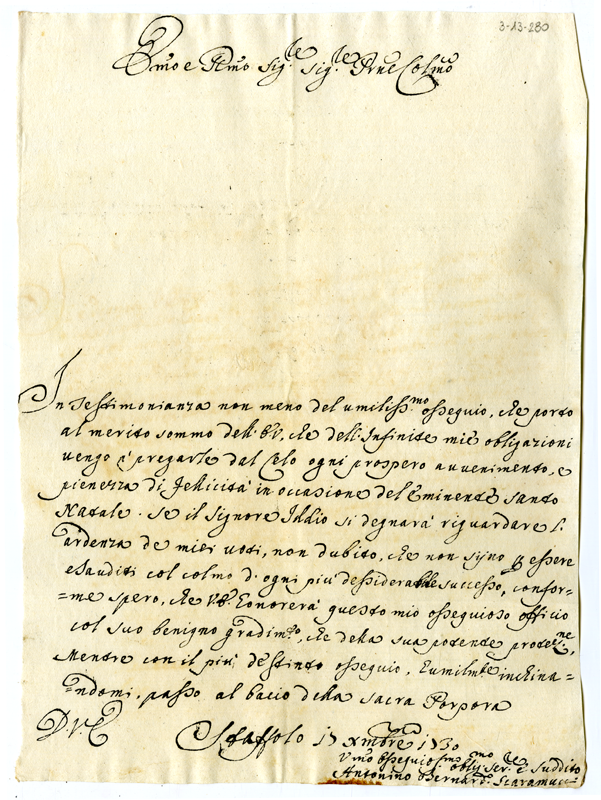 3-13-280
Emo e Rmo Sig.re Sig.re Prne Colmo
In testimonianza non meno del umiliss.mo ossequio, che porto
al merito sommo dell' EV, che dell' Infinite mie obligazioni
vengo à pregarle dal Celo ogni prospero avvenimento, e
pienezza di felicità in occasione del Eminente santo
Natale. Se il Signore Iddio si degnarà riguardare l'
ardenza de miei voti, non dubito, che non sijno per essere
esauditi col colmo d' ogni più desiderabile successo, confor-
=me spero, che V.E. honorerà questo mio ossequioso officio
col suo benigno gradim.to, che della sua potente protez.ne,
Mentre con il più destinto ossequio, humilm.te inchina=
=ndomi, passo al bacio della Sacra Porpora
D.V.E
Staffolo 17 Xmbre 1730
Vmo Ossequios.mo oblig. Ser.re e suddito
Antonino Bernard.o Scaramucc